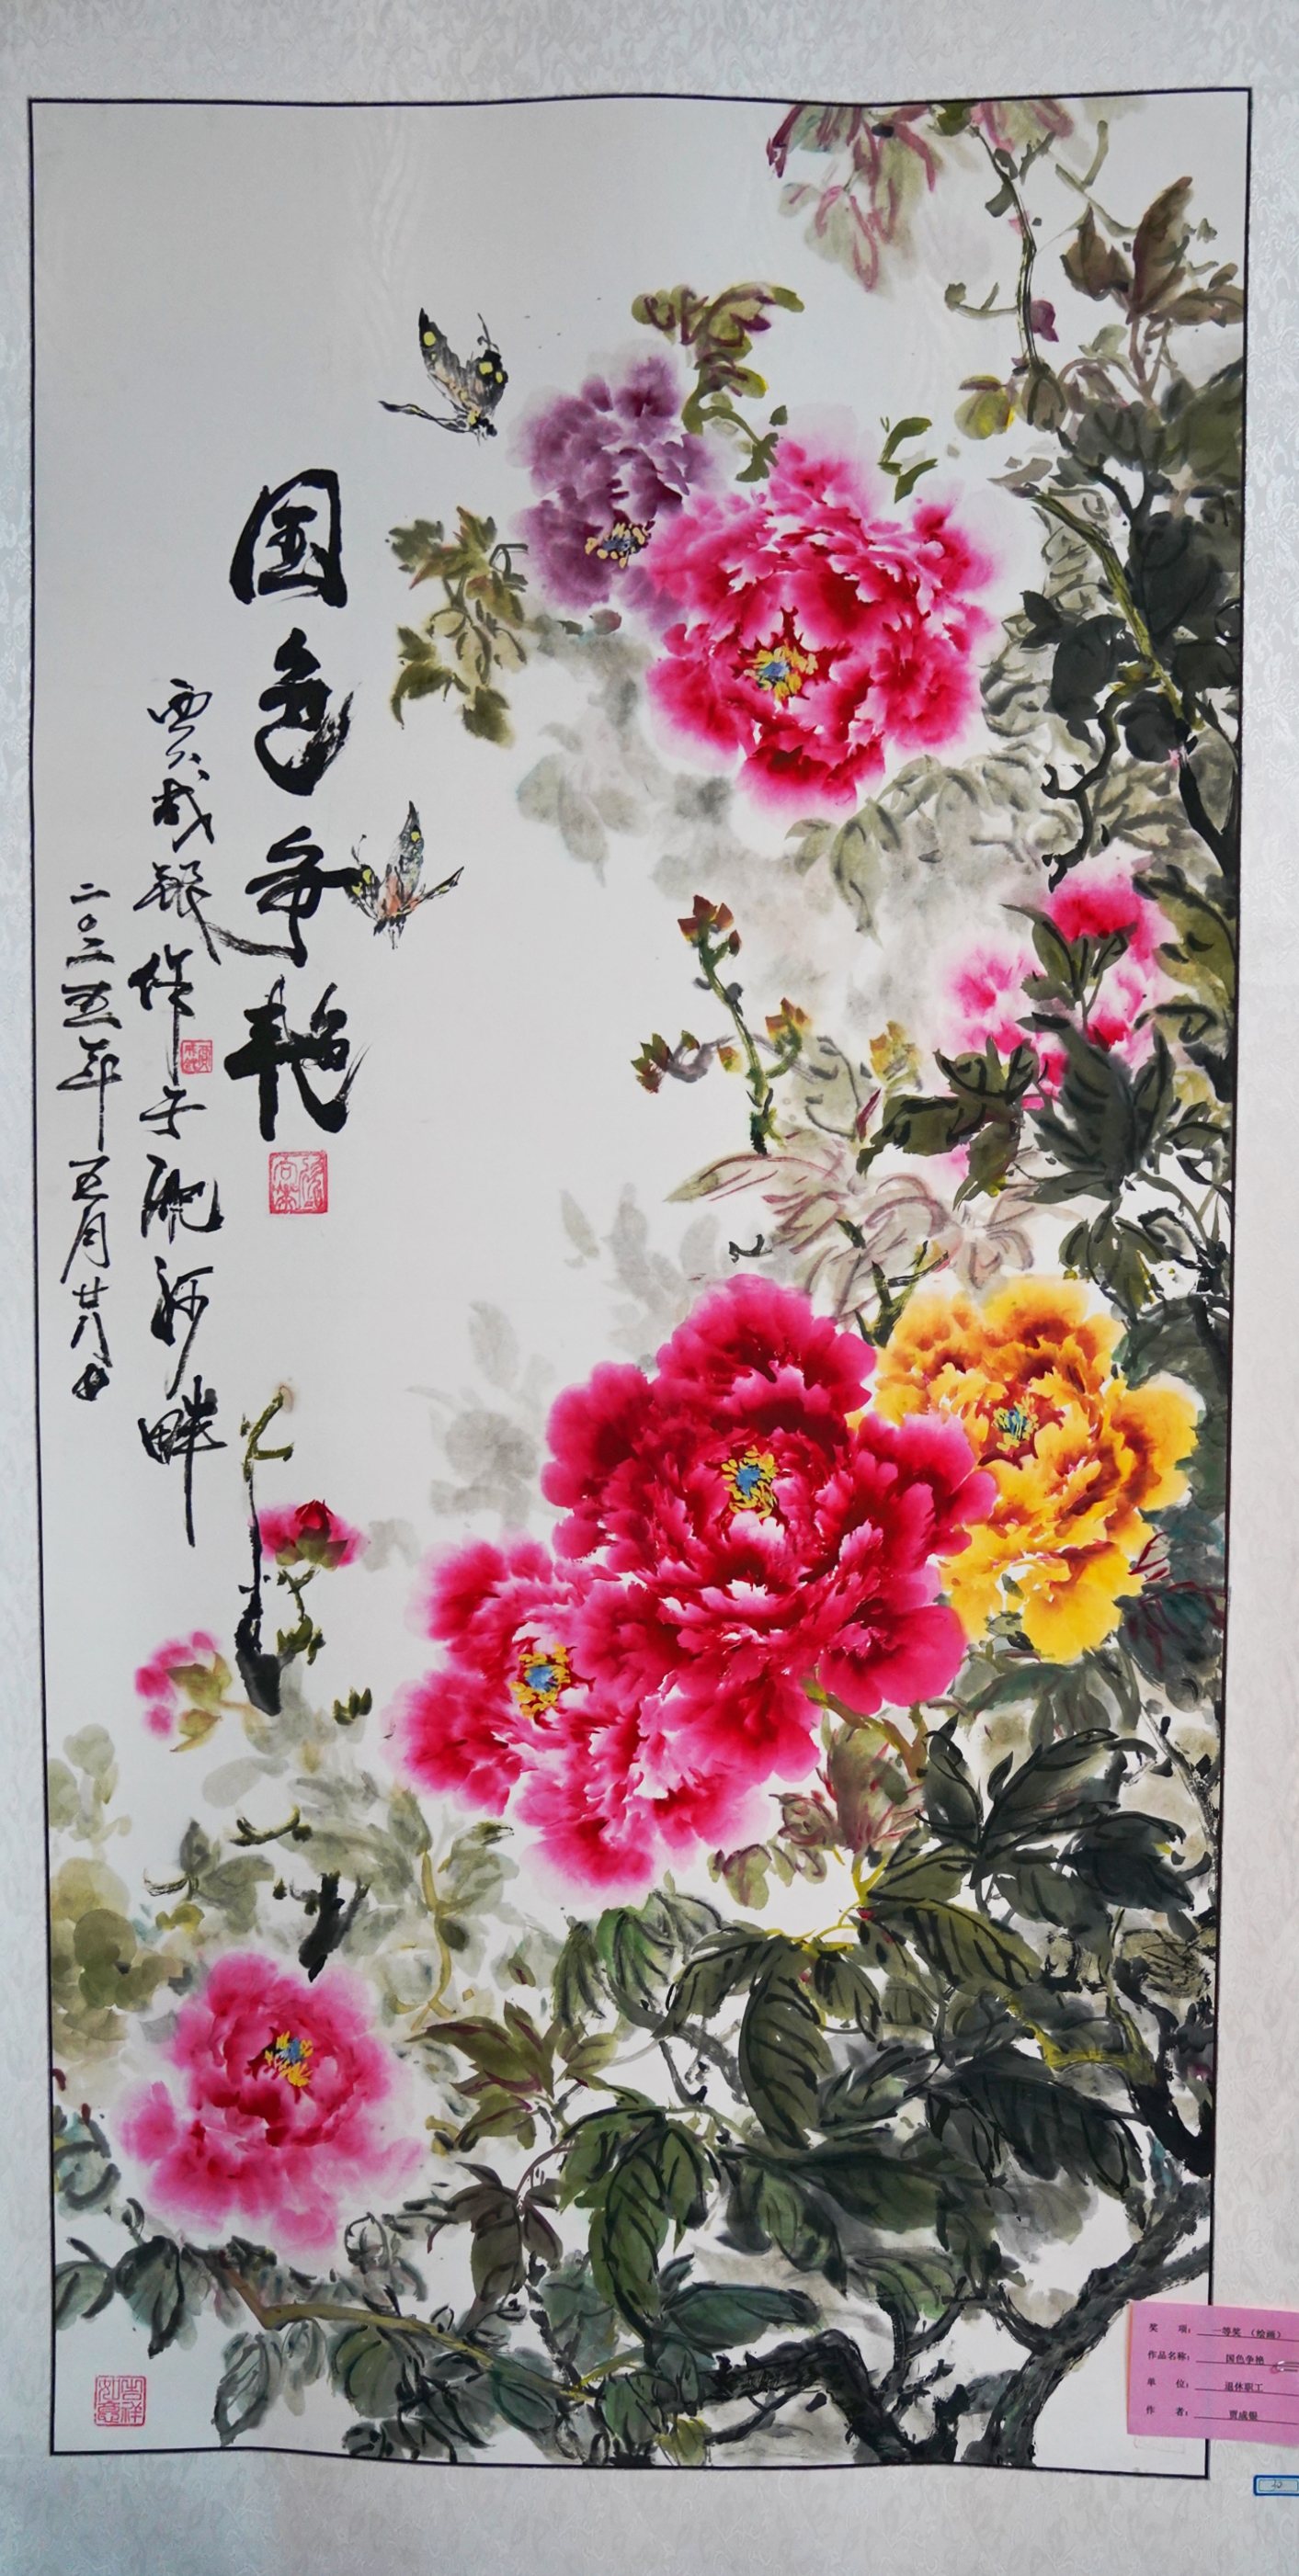 国色争艳
贾成银作于淝河畔
二〇二五年五月廿八日
吉祥如意
奖 项：一等奖（绘画）
作品名称：国色争艳
单 位：退休职工
作 者：贾成银